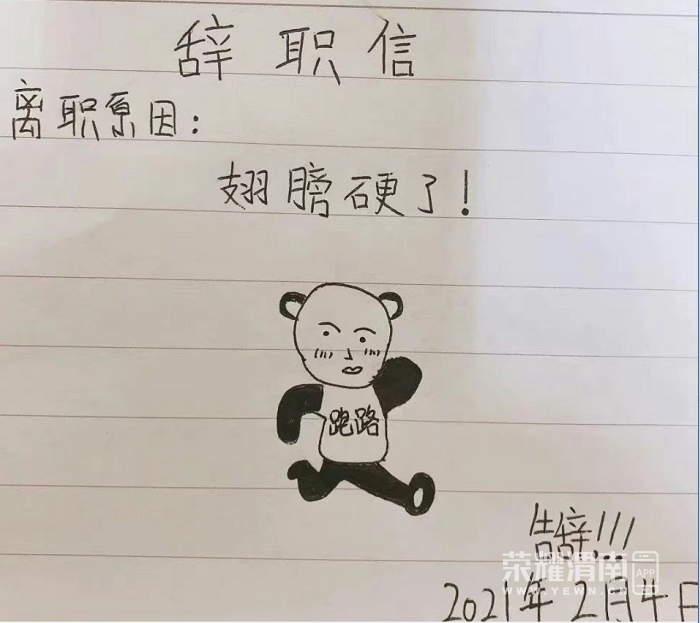 辞职信
离职原因:
翅膀硬了!
跑路
告辞!!!
荣耀渭南 APP
WWW.YEWN.CN
2021年2月4日